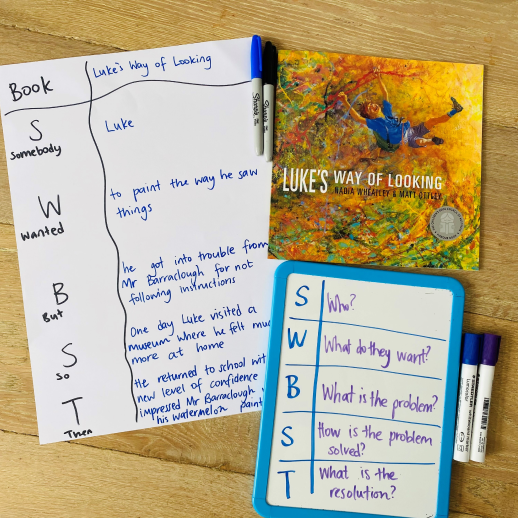 Book
Luke's Way of Looking
S
Somebody
Luke
W
Wanted
to paint the way he saw
things
B
But
he got into trouble from
Mr Barraclough for not
following instructions
S
So
One day Luke visited a
museum where he felt
more at home
T
Then
He returned to school
new level of confidence
impressed Mr Barraclough
his watermelon
Sharpie
Sharpie
LUKE'S WAY OF LOOKING
NADIA WHEATLEY & MATT OTTLEY
S Who?
W What do they want?
B What is the problem?
S How is the problem
solved?
T What is the
resolution?